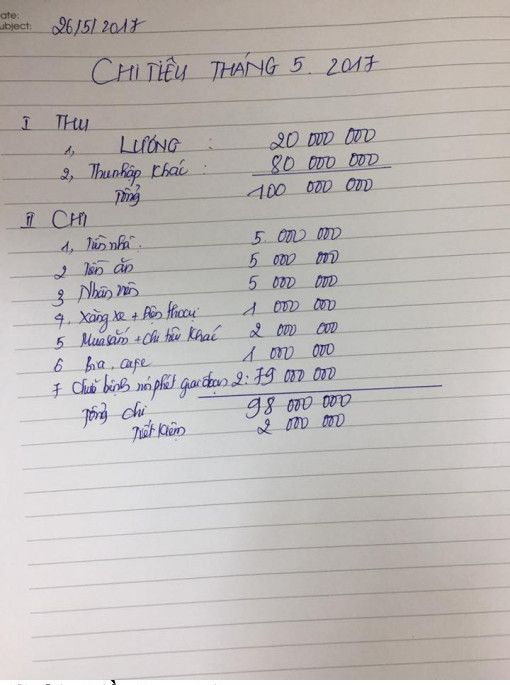 ate:
ubject:
26/5/2017
CHI TIÊU THÁNG 5. 2017
I THU
1, LƯƠNG : 20 000 000
2, Thu nhập khác : 80 000 000
Tổng 100 000 000
II CHI
1, Tiền nhà. 5 000 000
2 Tiền ăn 5 000 000
3 5 000 000
4, Xăng xe + Điện thoại 1 000 000
5 Mua sắm + chi tiêu khác 2 000 000
6 Bia, cafe 1 000 000
7 Chữa bệnh phát giai đoạn 2: 79 000 000
Tổng chi 98 000 000
Tiết kiệm 2 000 000